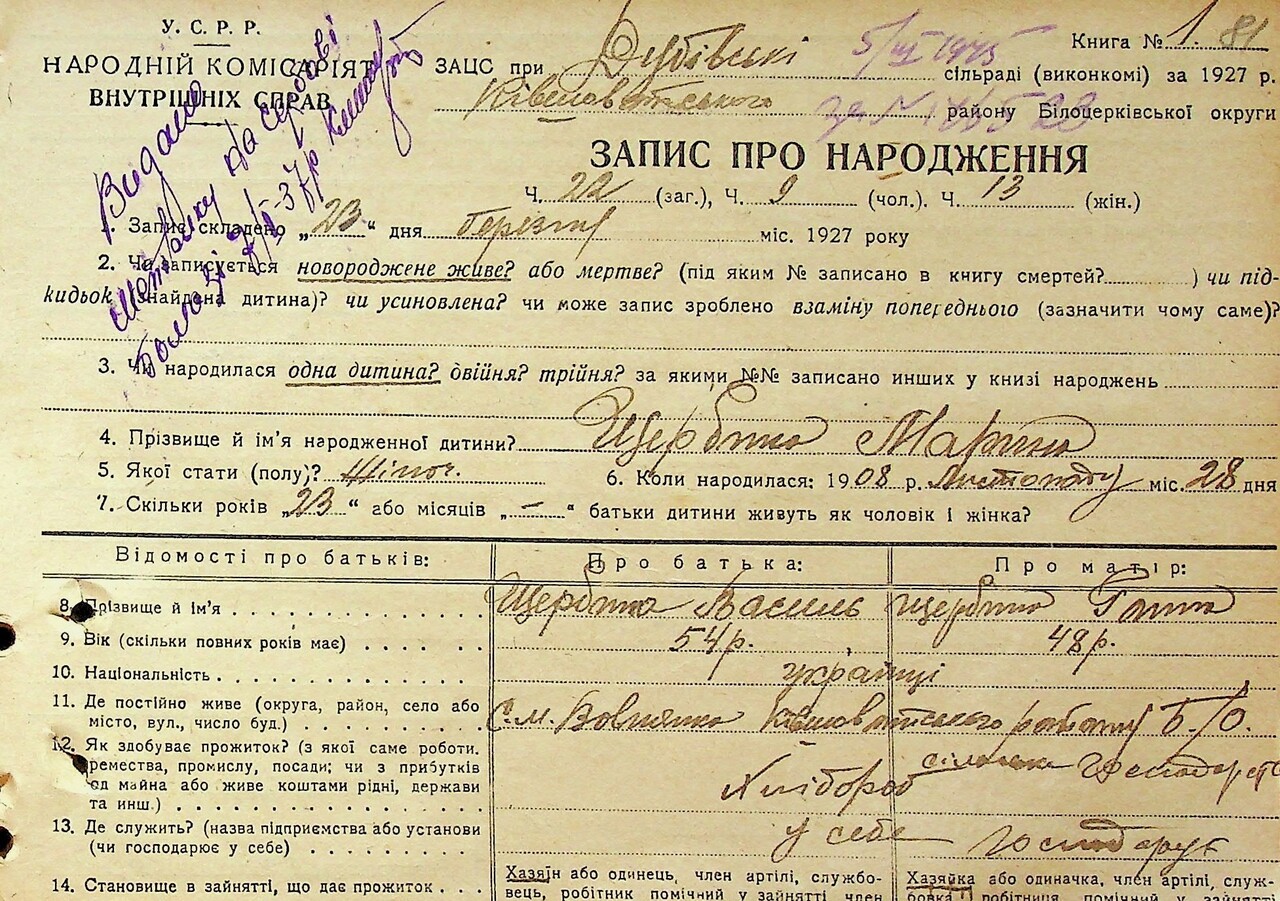 У. С. Р. Р.
НАРОДНІЙ КОМІСАРІЯТ
ВНУТРІШНІХ СПРАВ
Книга № 1. 81
ЗАЦС при Дубівські сільраді (виконкомі) за 1927 р.
5/III 1945
району Білоцерківської округи
Видано
ЗАПИС ПРО НАРОДЖЕННЯ
Ч. 22 (заг.), Ч. 9 (чол.). Ч. 13 (жін.)
1. Запис складено „23“ дня березня міс. 1927 року
2. Чи записується новороджене живе? або мертве? (під яким № записано в книгу смертей?) чи під-
кидьок (знайдена дитина)? чи усиновлена? чи може запис зроблено взаміну попереднього (зазначити чому саме)?
3. Чи народилася одна дитина? двійня? трійня? за якими №№ записано инших у книзі народжень
4. Прізвище й ім’я народженної дитини? Щербина Марина
5. Якої стати (полу)? Жіноч. 6. Коли народилася: 1908 р. Листопаду міс. 28 дня
7. Скільки років „23“ або місяців „–“ батьки дитини живуть як чоловік і жінка?
Відомості про батьків: Про батька: Про матір:
8. Прізвище й ім’я Щербина Василь Щербина Ганна
9. Вік (скільки повних років має) 54 р. 48 р.
10. Національність українці
11. Де постійно живе (округа, район, село або
місто, вул., число буд.) С. М. Вовнянка району Б/О.
12. Як здобуває прожиток? (з якої саме роботи.
ремества, промислу, посади; чи з прибутків
од майна або живе коштами рідні, держави
та инш.) Хлібороб сільське господарство
13. Де служить? (назва підприємства або установи
(чи господарює у себе) у себе господарує
14. Становище в зайнятті, що дає прожиток
Хазяїн або одинець, член артілі, службо-
вець, робітник помічний у зайнятті член
Хазяйка або одиначка, член артілі, служ-
бовка, робітниця, помічний у зайнятті